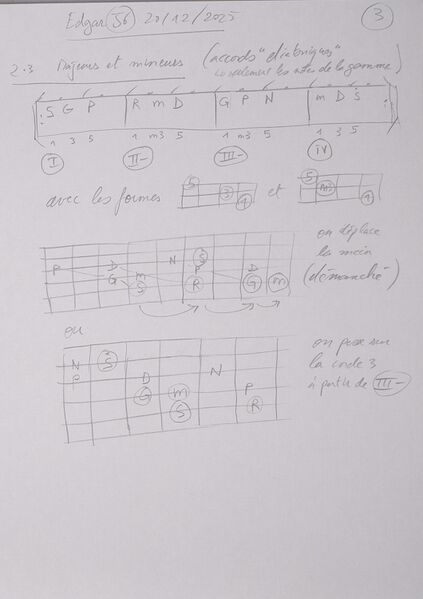 Edgar 20/12/2025 3
2.3 Majeurs et mineurs (accords "diatoniques"
les notes de la gamme)
S G P R m D G P N m D S
1 3 5 1 m3 5 1 m3 5 1 3 5
I II- III- IV
avec les formes 5 3 1 et 5 m3 1
on déplace
la main
(démanché)
N S
P D P D
G m R G m
S
ou
on passe sur
la corde 3
à partir de III-
N S N
P D P
G m R
S